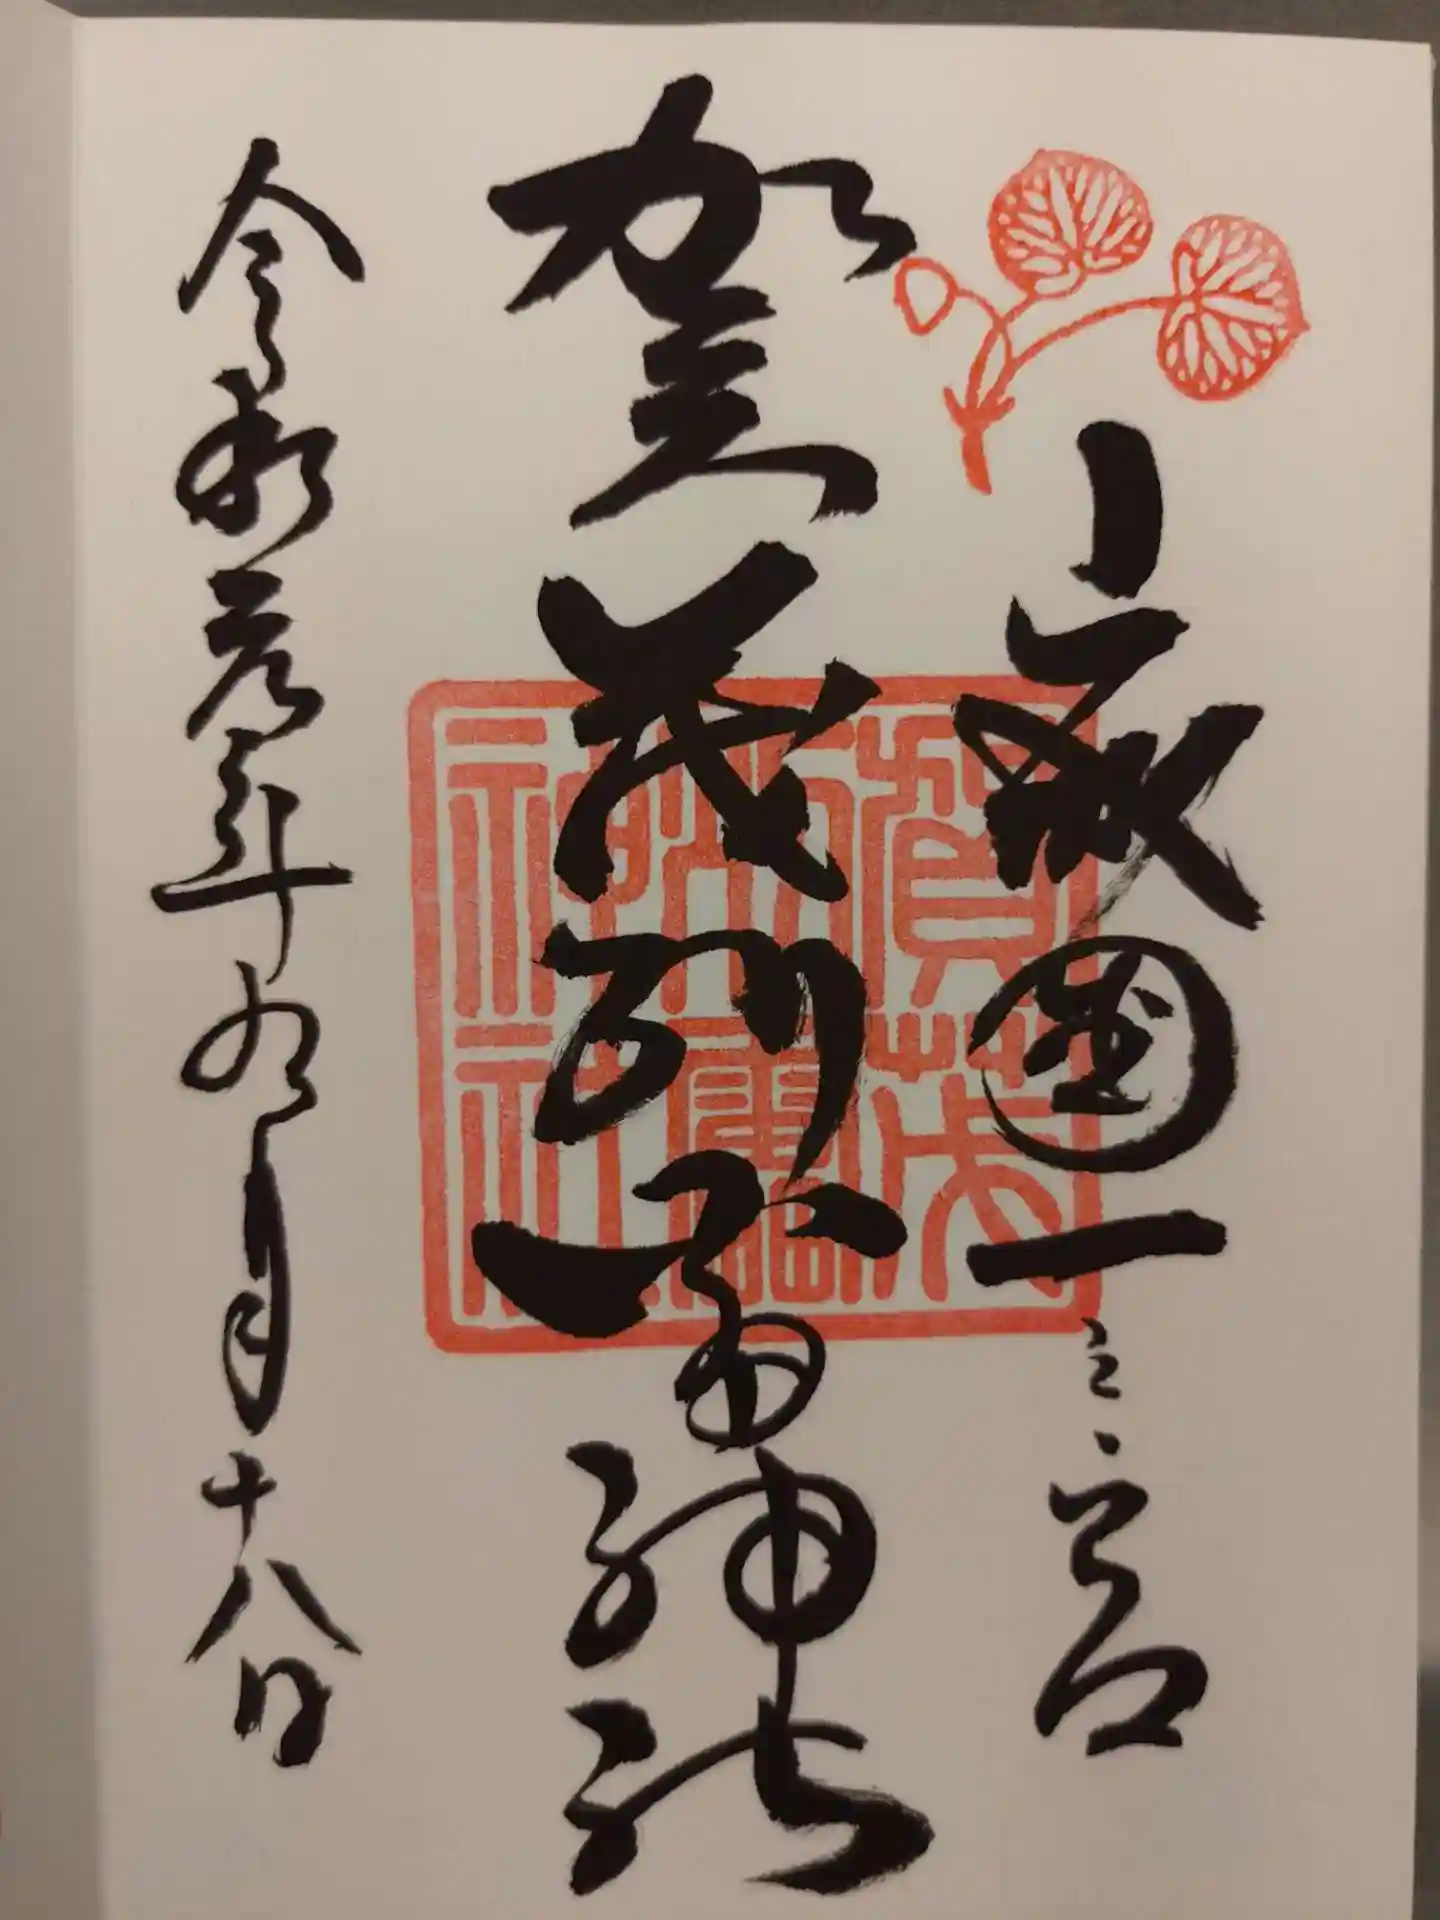 山城國一之宮
賀茂別雷神社
令和元年九月十八日
賀茂
別雷
神社